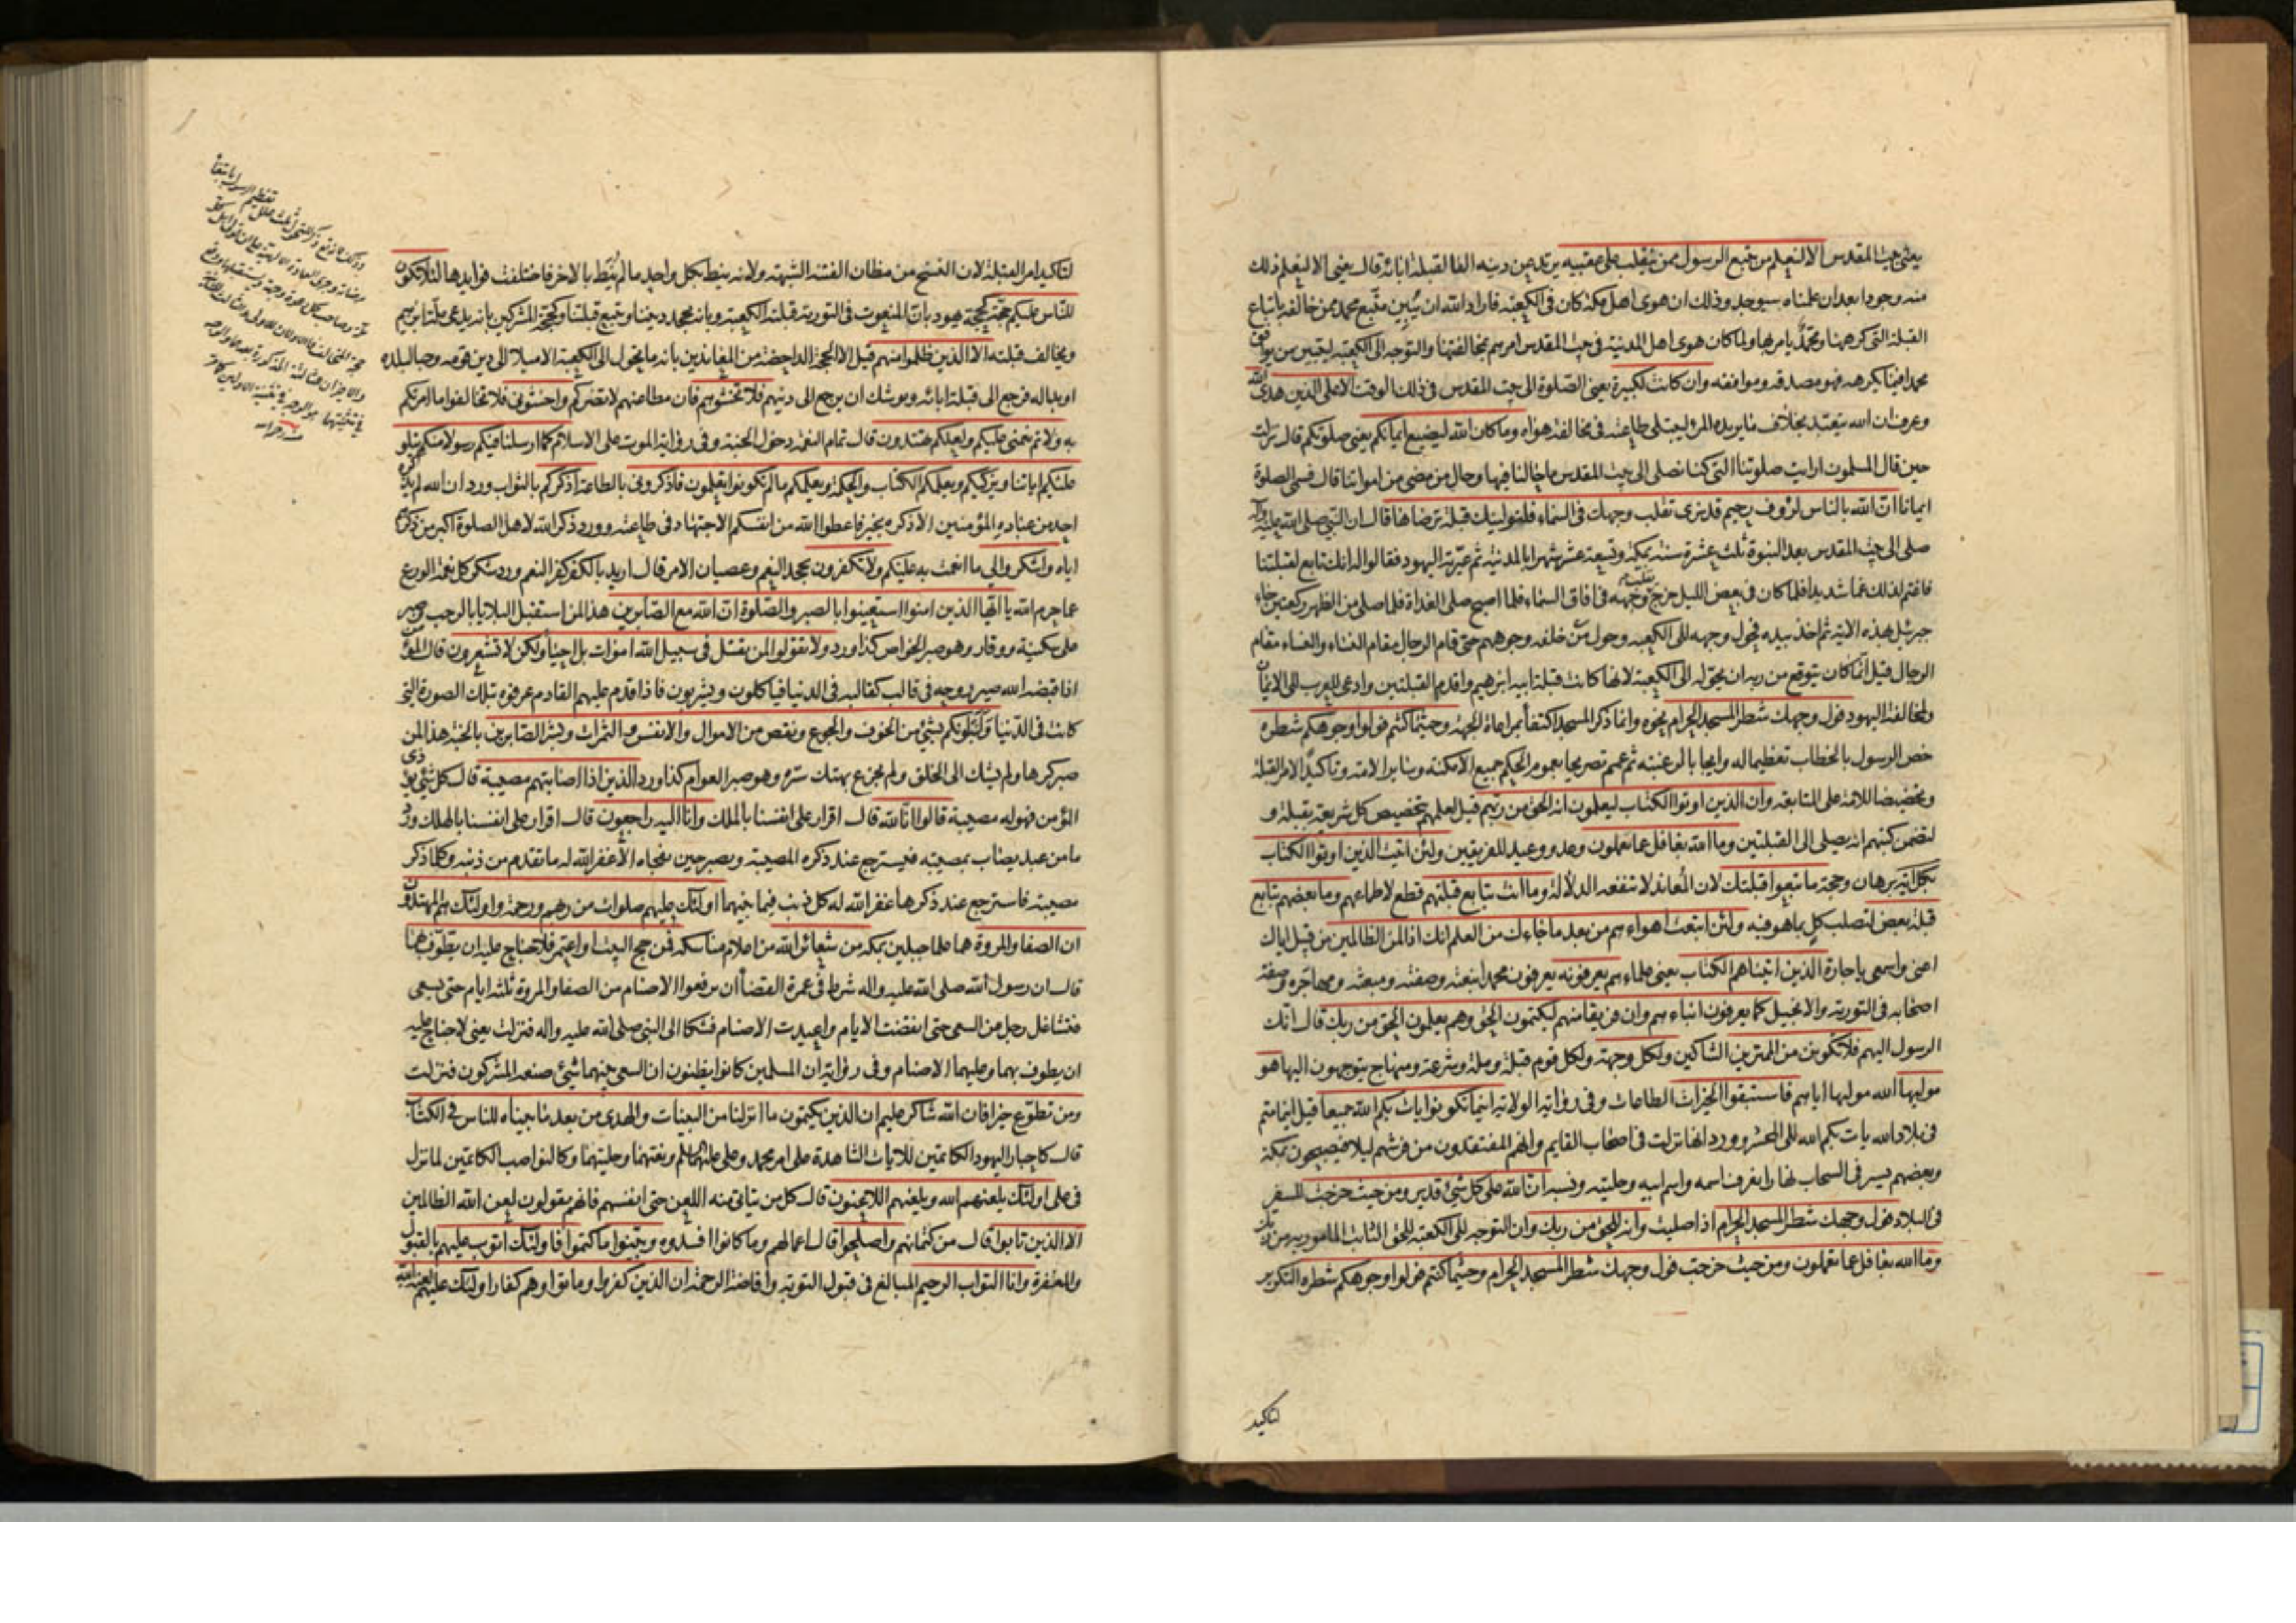 يعني بيت المقدس الا لنعلم من يتبع الرسول ممن ينقلب على عقبيه يرتد عن دينه الفا لقبلة ابائه قال يعني الا لنعلم ذلك
منه وجودا بعد ان علمناه سيوجد وذلك ان هوى اهل مكة كان في الكعبة فاراد الله ان يبين متبع محمد ممن خالفه باتباع
القبلة التي كرهها ومحمد يامر بها ولما كان هوى اهل المدينة في بيت المقدس امرهم بمخالفتها والتوجه الى الكعبة ليتبين من يوافق
محمدا فيما يكرهه فهو مصدقه وموافقه وان كانت لكبيرة يعني الصلوة الى بيت المقدس في ذلك الوقت الا على الذين هدى الله
وعرف ان الله يتعبد بخلاف ما يريده المرء ليبتلي طاعته في مخالفة هواه وما كان الله ليضيع ايمانكم يعني صلوتكم قال نزلت
حين قال المسلمون ارايت صلوتنا التي كنا نصلي الى بيت المقدس ما حالنا فيها وحال من مضى من امواتنا قال فسمى الصلوة
ايمانا ان الله بالناس لرؤف رحيم قد نرى تقلب وجهك في السماء فلنولينك قبلة ترضاها قال ان النبي صلى الله عليه وآله
صلى الى بيت المقدس بعد النبوة ثلث عشرة سنة بمكة وتسعة عشر شهرا بالمدينة ثم عيرته اليهود فقالوا له انك تابع لقبلتنا
فاغتم لذلك غما شديدا فلما كان في بعض الليل خرج يقلب وجهه في افاق السماء فلما اصبح صلى الغداة فلما صلى من الظهر ركعتين جاء
جبرئيل بهذه الاية ثم اخذ بيده فحول وجهه الى الكعبة وحول من خلفه وجوههم حتى قام الرجال مقام النساء والنساء مقام
الرجال قيل انما كان يتوقع من ربه ان يحوله الى الكعبة لانها كانت قبلة ابيه ابرهيم واقدم القبلتين وادعى للعرب الى الايمان
ولمخالفة اليهود فول وجهك شطر المسجد الحرام نحوه وانما ذكر المسجد اكتفاء بمراعاة الجهة وحيثما كنتم فولوا وجوهكم شطره
خص الرسول بالخطاب تعظيما له وايجابا لرغبته ثم عمم تصريحا بعموم الحكم جميع الامكنة وسائر الامة وتاكيدا لامر القبلة
وتحضيضا للامة على المتابعة وان الذين اوتوا الكتاب ليعلمون انه الحق من ربهم قيل لعلمهم بتخصيص كل شريعة بقبلة و
لتضمن كتبهم انه يصلي الى القبلتين وما الله بغافل عما تعملون وعد ووعيد للفريقين ولئن اتيت الذين اوتوا الكتاب
بكل اية برهان وحجة ما تبعوا قبلتك لان المعاند لا تنفعه الدلالة وما انت بتابع قبلتهم قطع لاطماعهم وما بعضهم بتابع
قبلة بعض لتصلب كل بما هو فيه ولئن اتبعت اهواءهم من بعد ما جاءك من العلم انك اذا لمن الظالمين من قبيل اياك
اعني واسمعي يا جارة الذين اتيناهم الكتاب يعني علماءهم يعرفونه يعرفون محمدا بنعته وصفته ومبعثه ومهاجره وصفة
اصحابه في التورية والانجيل كما يعرفون ابناءهم وان فريقا منهم ليكتمون الحق وهم يعلمون الحق من ربك قال انك
الرسول اليهم فلا تكونن من الممترين الشاكين ولكل وجهة ولكل قوم قبلة وملة وشرعة ومنهاج يتوجهون اليها هو
موليها الله موليها اياهم فاستبقوا الخيرات الطاعات وفي رواية الولاية اينما تكونوا يات بكم الله جميعا قيل اينما متم
في بلاد الله يات بكم الله الى المحشر وورد انها نزلت في اصحاب القايم وانهم المفتقدون من فرشهم ليلا فيصبحون بمكة
وبعضهم يسير في السحاب نهارا يعرف اسمه واسم ابيه وحليته ونسبه ان الله على كل شيء قدير ومن حيث خرجت للسفر
في البلاد فول وجهك شطر المسجد الحرام اذا صليت وانه للحق من ربك وان التوجه الى الكعبة للحق الثابت المامور به من ربك
وما الله بغافل عما تعملون ومن حيث خرجت فول وجهك شطر المسجد الحرام وحيثما كنتم فولوا وجوهكم شطره التكرير
لتاكيد
لتاكيد امر القبلة لان النسخ من مظان الفتنة والشبهة ولانه ينط بكل واحد ما لم ينط بالاخر فاختلفت فوايدها لئلا تكون
للناس عليكم حجة كحجة يهود بان المنعوت في التورية قبلته الكعبة وبانه يجحد ديننا ويتبع قبلتنا وكحجة المشركين بانه يدعي ملة ابرهيم
ويخالف قبلته الا الذين ظلموا منهم قيل الا الحجة الداحضة من المعاندين بانه ما يحول الى الكعبة الا ميلا الى دين قومه وحبا لبلده
او بدا له فرجع الى قبلة ابائه ويوشك ان يرجع الى دينهم فلا تخشوهم فان مطاعنهم لا تضركم واخشوني فلا تخالفوا ما امرتكم
به ولاتم نعمتي عليكم ولعلكم تهتدون قال تمام النعمة دخول الجنة وفي رواية الموت على الاسلام كما ارسلنا فيكم رسولا منكم يتلو
عليكم اياتنا ويزكيكم ويعلمكم الكتاب والحكمة ويعلمكم ما لم تكونوا تعلمون فاذكروني بالطاعة اذكركم بالثواب وورد ان الله لم يذكره
احد من عباده المؤمنين الا ذكره بخير فاعطوا الله من انفسكم الاجتهاد في طاعته وورد ذكر الله لاهل الصلوة اكبر من ذكرهم
اياه واشكروا لي ما انعمت به عليكم ولا تكفرون بجحد النعم وعصيان الامر قال اريد بالكفر كفر النعم وورد شكر كل نعمة الورع
عما حرم الله يا ايها الذين امنوا استعينوا بالصبر والصلوة ان الله مع الصابرين هذا لمن استقبل البلايا بالرحب وصبر
على سكينة ووقار وهو صبر الخواص كذا ورد ولا تقولوا لمن يقتل في سبيل الله اموات بل احياء ولكن لا تشعرون قال المؤمن
اذا قبضه الله صير روحه في قالب كقالبه في الدنيا فياكلون ويشربون فاذا قدم عليهم القادم عرفوه بتلك الصورة التي
كانت في الدنيا ولنبلونكم بشيء من الخوف والجوع ونقص من الاموال والانفس والثمرات وبشر الصابرين بالجنة هذا لمن
صبر كرها ولم يشك الى الخلق ولم يجزع بهتك ستره وهو صبر العوام كذا ورد الذين اذا اصابتهم مصيبة قال كل شيء يؤذي
المؤمن فهو له مصيبة قالوا انا لله قال اقرار على انفسنا بالملك وانا اليه راجعون قال اقرار على انفسنا بالهلك ورد
ما من عبد يصاب بمصيبة فيسترجع عند ذكره المصيبة ويصبر حين تفجاه الا غفر الله له ما تقدم من ذنبه وكلما ذكر
مصيبته فاسترجع عند ذكرها غفر الله له كل ذنب فيما بينهما اولئك عليهم صلوات من ربهم ورحمة واولئك هم المهتدون
ان الصفا والمروة هما علما جبلين بمكة من شعائر الله من اعلام مناسكه فمن حج البيت او اعتمر فلا جناح عليه ان يطوف بهما
قال ان رسول الله صلى الله عليه واله شرط في عمرة القضاء ان يرفعوا الاصنام من الصفا والمروة ثلثة ايام حتى يسعى
فتشاغل رجل من السعي حتى انقضت الايام واعيدت الاصنام فشكا الى النبي صلى الله عليه واله فنزلت يعني لا جناح عليه
ان يطوف بهما وعليهما الاصنام وفي رواية ان المسلمين كانوا يظنون ان السعي بينهما شيء صنعه المشركون فنزلت
ومن تطوع خيرا فان الله شاكر عليم ان الذين يكتمون ما انزلنا من البينات والهدى من بعد ما بيناه للناس في الكتاب
قال كاحبار اليهود الكاتمين للايات الشاهدة على امر محمد وعلي عليهما السلم ونعتهما وحليتهما وكالنواصب الكاتمين لما نزل
في علي اولئك يلعنهم الله ويلعنهم اللاعنون قال كل من يتاتى منه اللعن حتى انفسهم فانهم يقولون لعن الله الظالمين
الا الذين تابوا قال من كتمانهم واصلحوا قال اعمالهم وما كانوا افسدوه وبينوا ما كتموا فاولئك اتوب عليهم بالقبول
والمغفرة وانا التواب الرحيم المبالغ في قبول التوبة وافاضة الرحمة ان الذين كفروا وماتوا وهم كفار اولئك عليهم لعنة الله